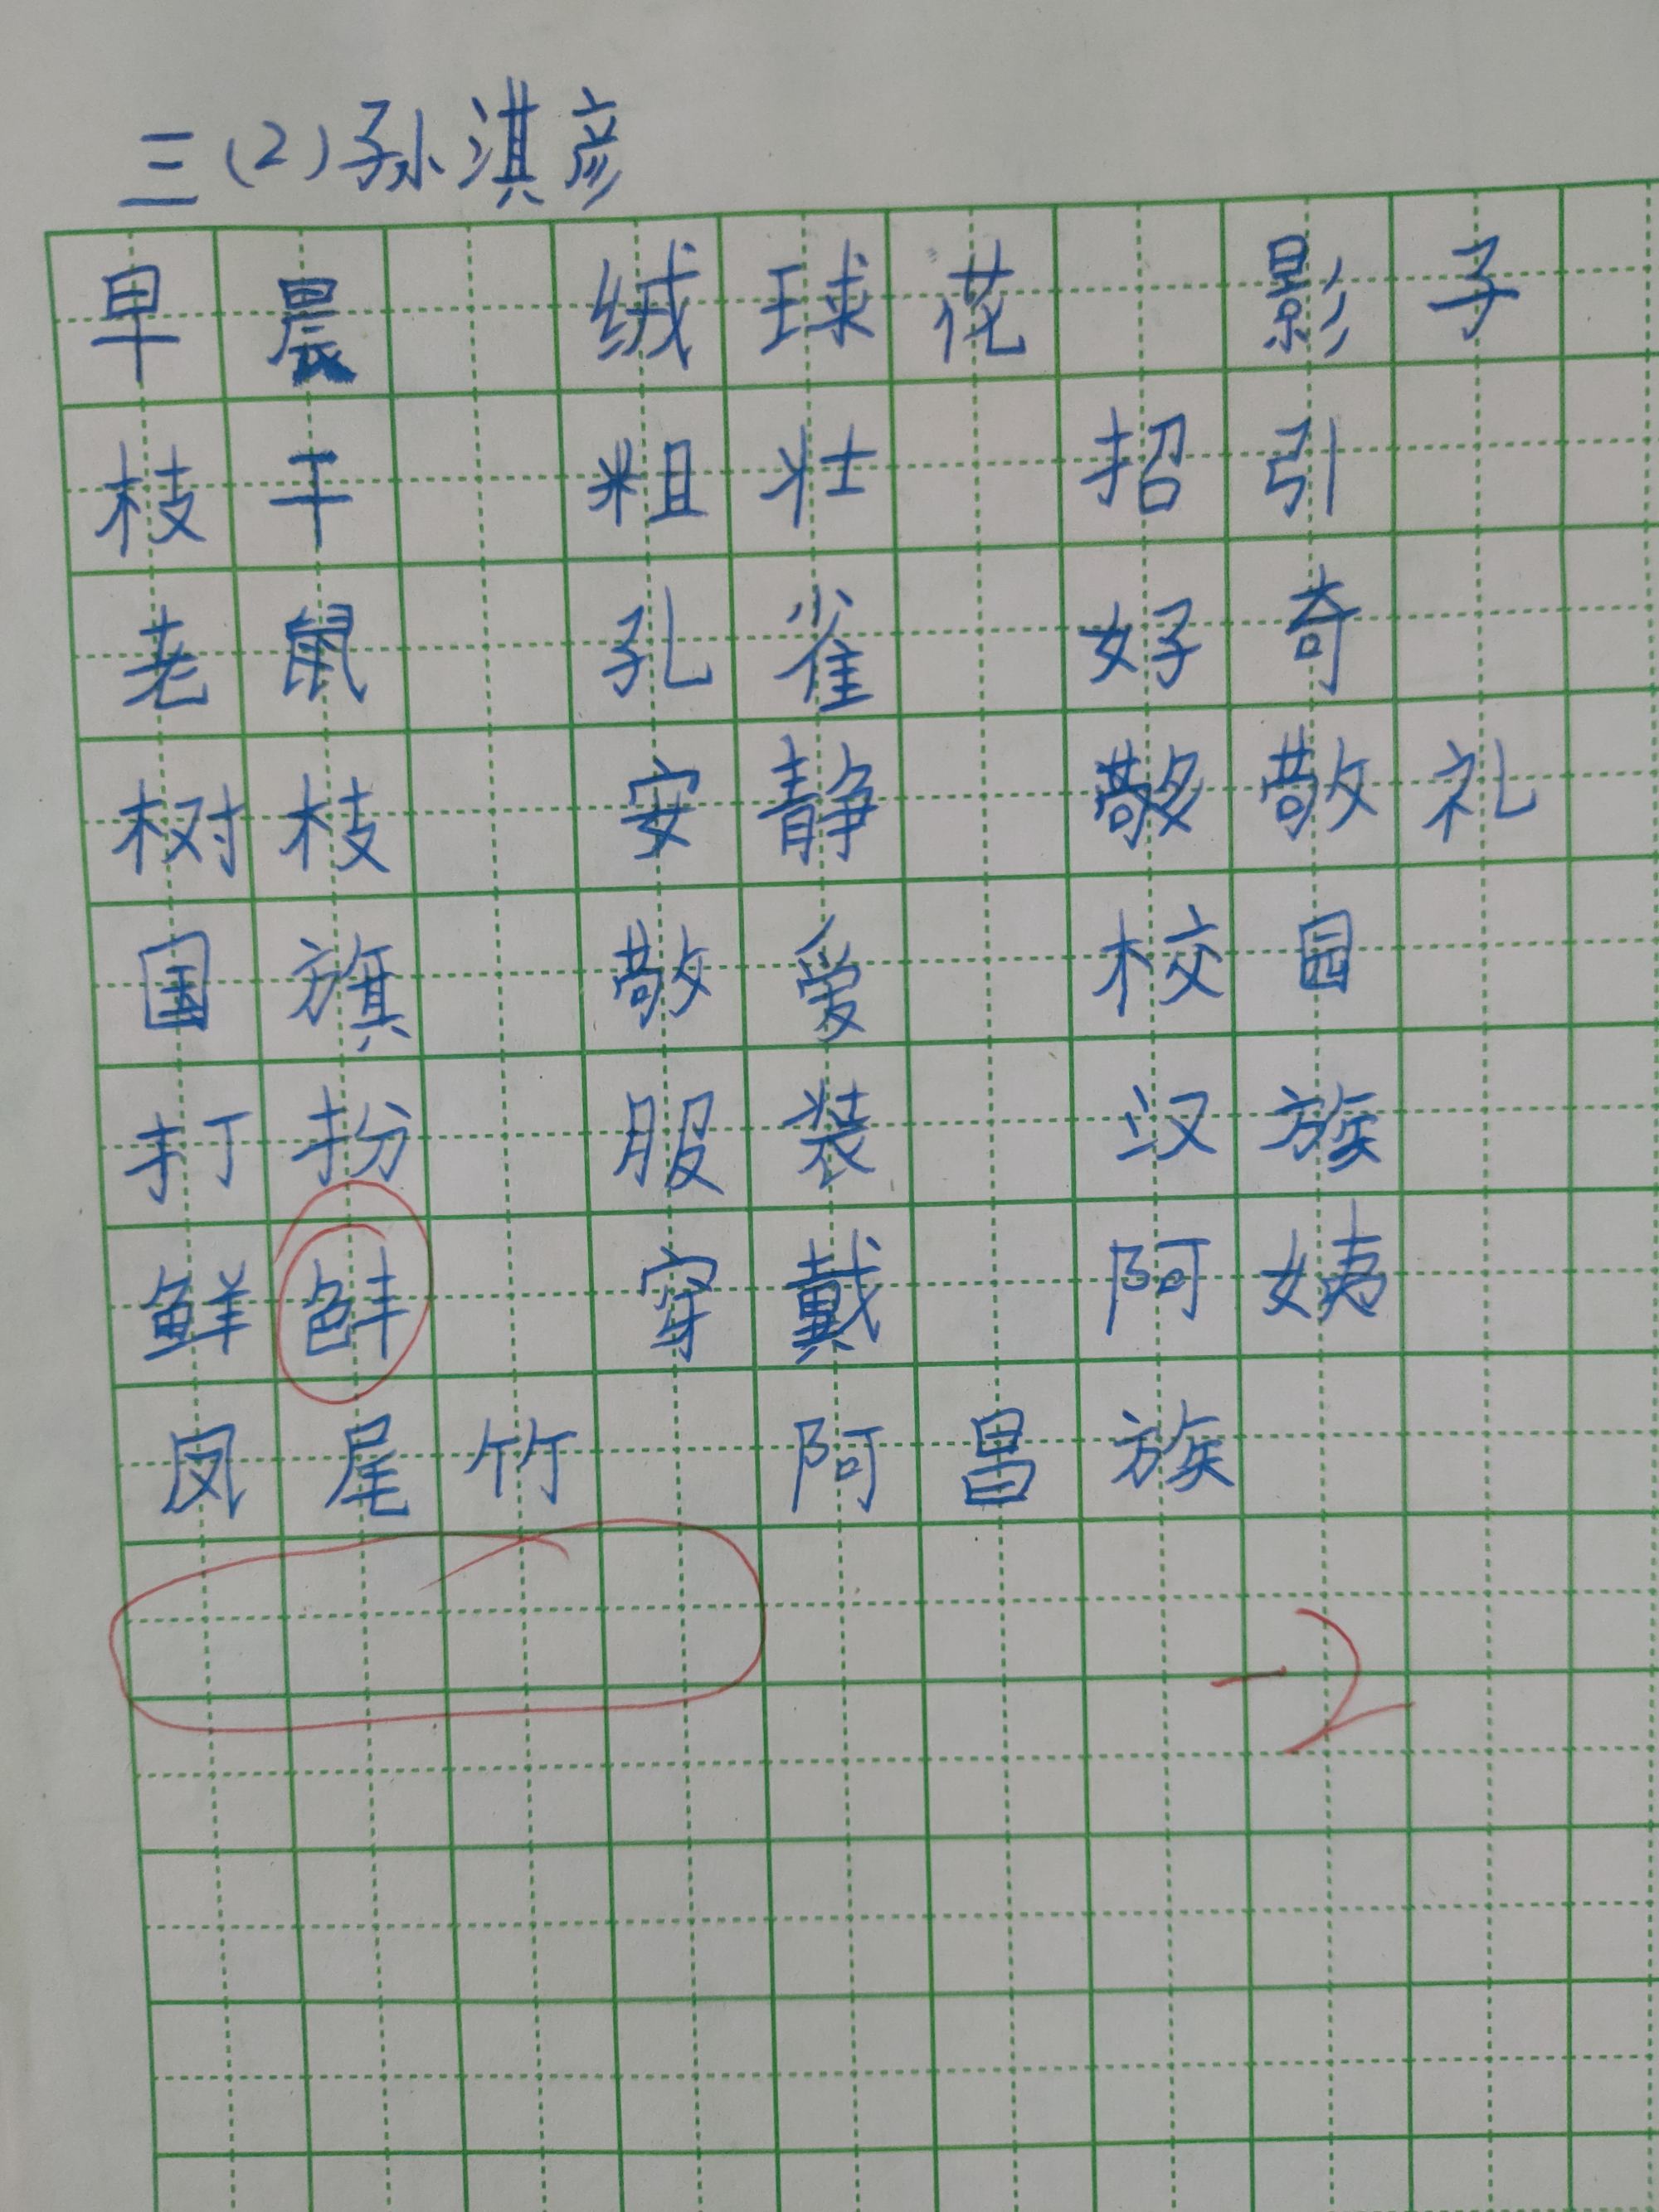 三(2)孙淇彦
早晨 绒球花 影子
枝干 粗壮 招引
老鼠 孔雀 好奇
树枝 安静 敬敬礼
国旗 敬爱 校园
打扮 服装 汉族
鲜 穿戴 阿姨
凤尾竹 阿昌族
-2